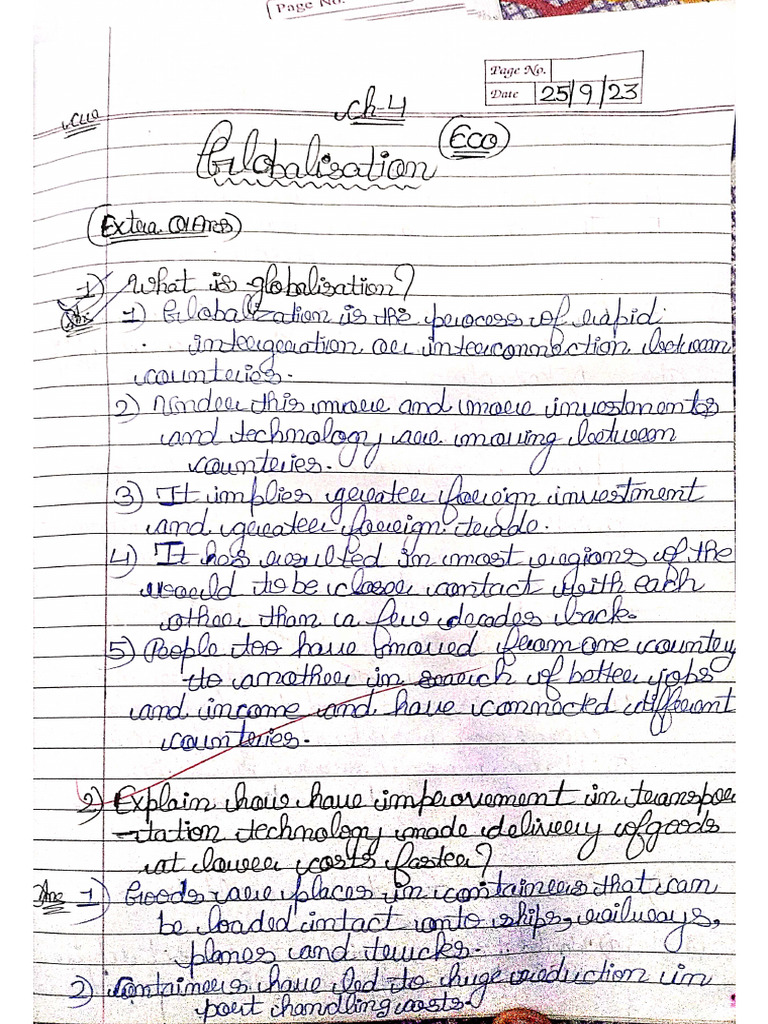 Page No.
Page No.
Date 25/9/23
CW
Ch-4
Globalisation (Eco)
(Extra Q/Ans)
1) What is globalisation?
Ans 1) Globalization is the process of rapid
integration or interconnection between
countries.
2) Under this more and more investments
and technology are moving between
countries.
3) It implies greater foreign investment
and greater foreign trade.
4) It has resulted in most regions of the
world to be closer contact with each
other than a few decades back.
5) People too have moved from one country
to another in search of better jobs
and income and have connected different
countries.
2) Explain how have improvement in transpor
-tation technology made delivery of goods
at lower costs faster?
Ans 1) Goods are places in containers that can
be loaded intact onto ships, railways,
planes and trucks.
2) Containers have led to huge reduction in
port handling costs.